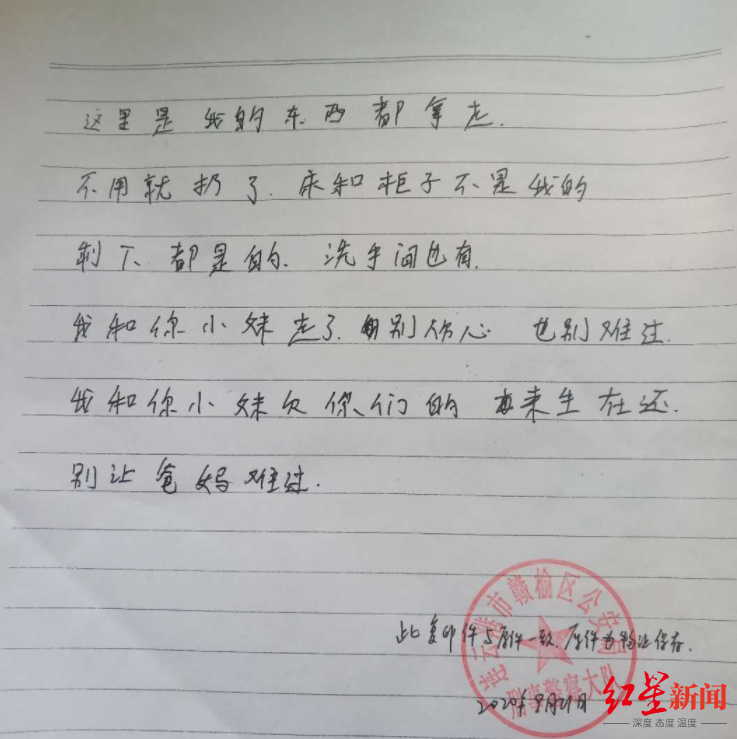 这里是我的东西都拿走.
不用就扔了.床和柜子不是我的
剩下都是的.洗手间也有.
我和你小妹走了.别伤心 也别难过.
我和你小妹欠你们的 来生在还.
别让爸妈难过.
此复印件与原件一致.原件为物证保存.
2020年9月21日
连云港市赣榆区公安局
刑事警察大队
红星新闻
深度 态度 温度